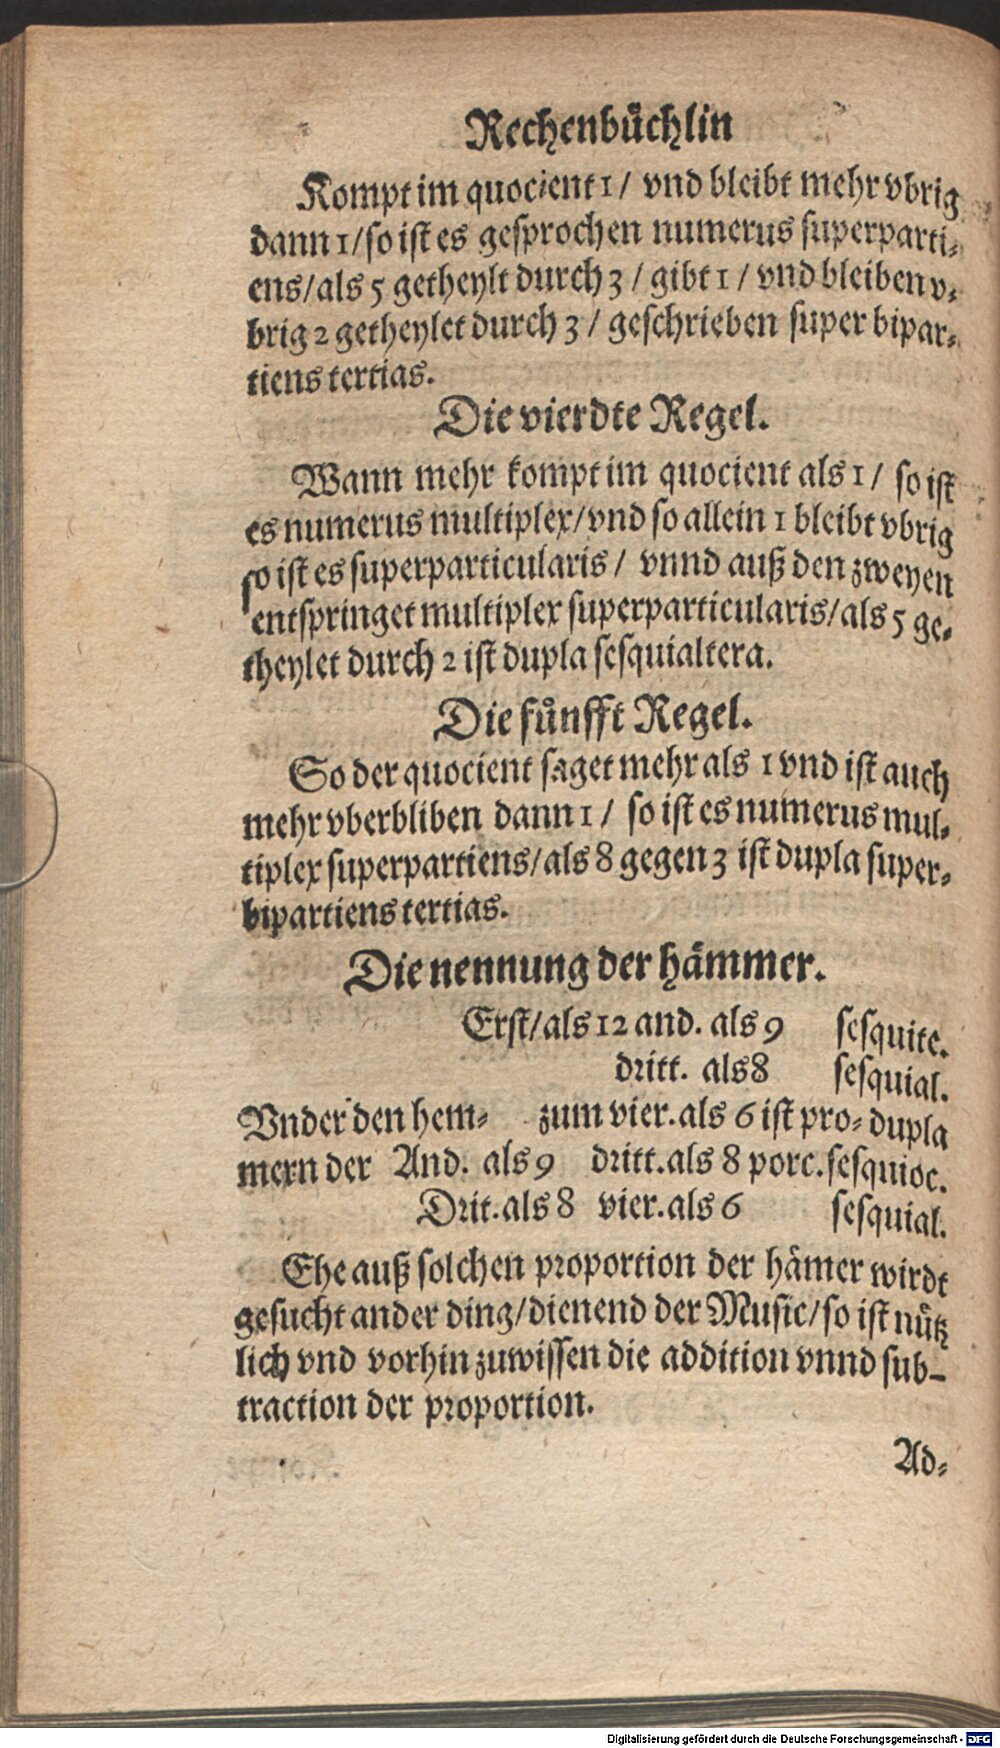 Rechenbuͤchlin
Kompt im quocient 1 / vnd bleibt mehr vbrig
dann 1 / so ist es gesprochen numerus superparti⸗
ens / als 5 getheylt durch 3 / gibt 1 / vnd bleiben v⸗
brig 2 getheylet durch 3 / geschrieben super bipar⸗
tiens tertias.
Die vierdte Regel.
Wann mehr kompt im quocient als 1 / so ist
es numerus multiplex / vnd so allein 1 bleibt vbrig
so ist es superparticularis / vnnd auß den zweyen
entspringet multiplex superparticularis / als 5 ge⸗
theylet durch 2 ist dupla sesquialtera.
Die fuͤnfft Regel.
So der quocient saget mehr als 1 vnd ist auch
mehr vberbliben dann 1 / so ist es numerus mul⸗
tiplex superpartiens / als 8 gegen 3 ist dupla super⸗
bipartiens tertias.
Die nennung der hämmer.
Erst / als 12 and. als 9 sesquite.
dritt. als 8 sesquial.
Vnder den hem⸗ zum vier. als 6 ist pro⸗ dupla
mern der And. als 9 dritt. als 8 porc. sesquioc.
Drit. als 8 vier. als 6 sesquial.
Ehe auß solchen proportion der hämer wirdt
gesucht ander ding / dienend der Music / so ist nuͤtz
lich vnd vorhin zuwissen die addition vnnd sub⸗
traction der proportion.
Ad⸗
Digitalisierung gefördert durch die Deutsche Forschungsgemeinschaft - DFG